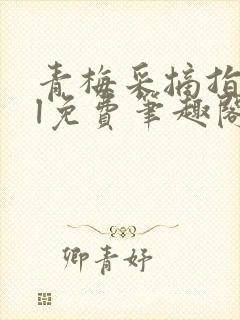 青梅采摘指
l免费笔趣阁
卿青妤